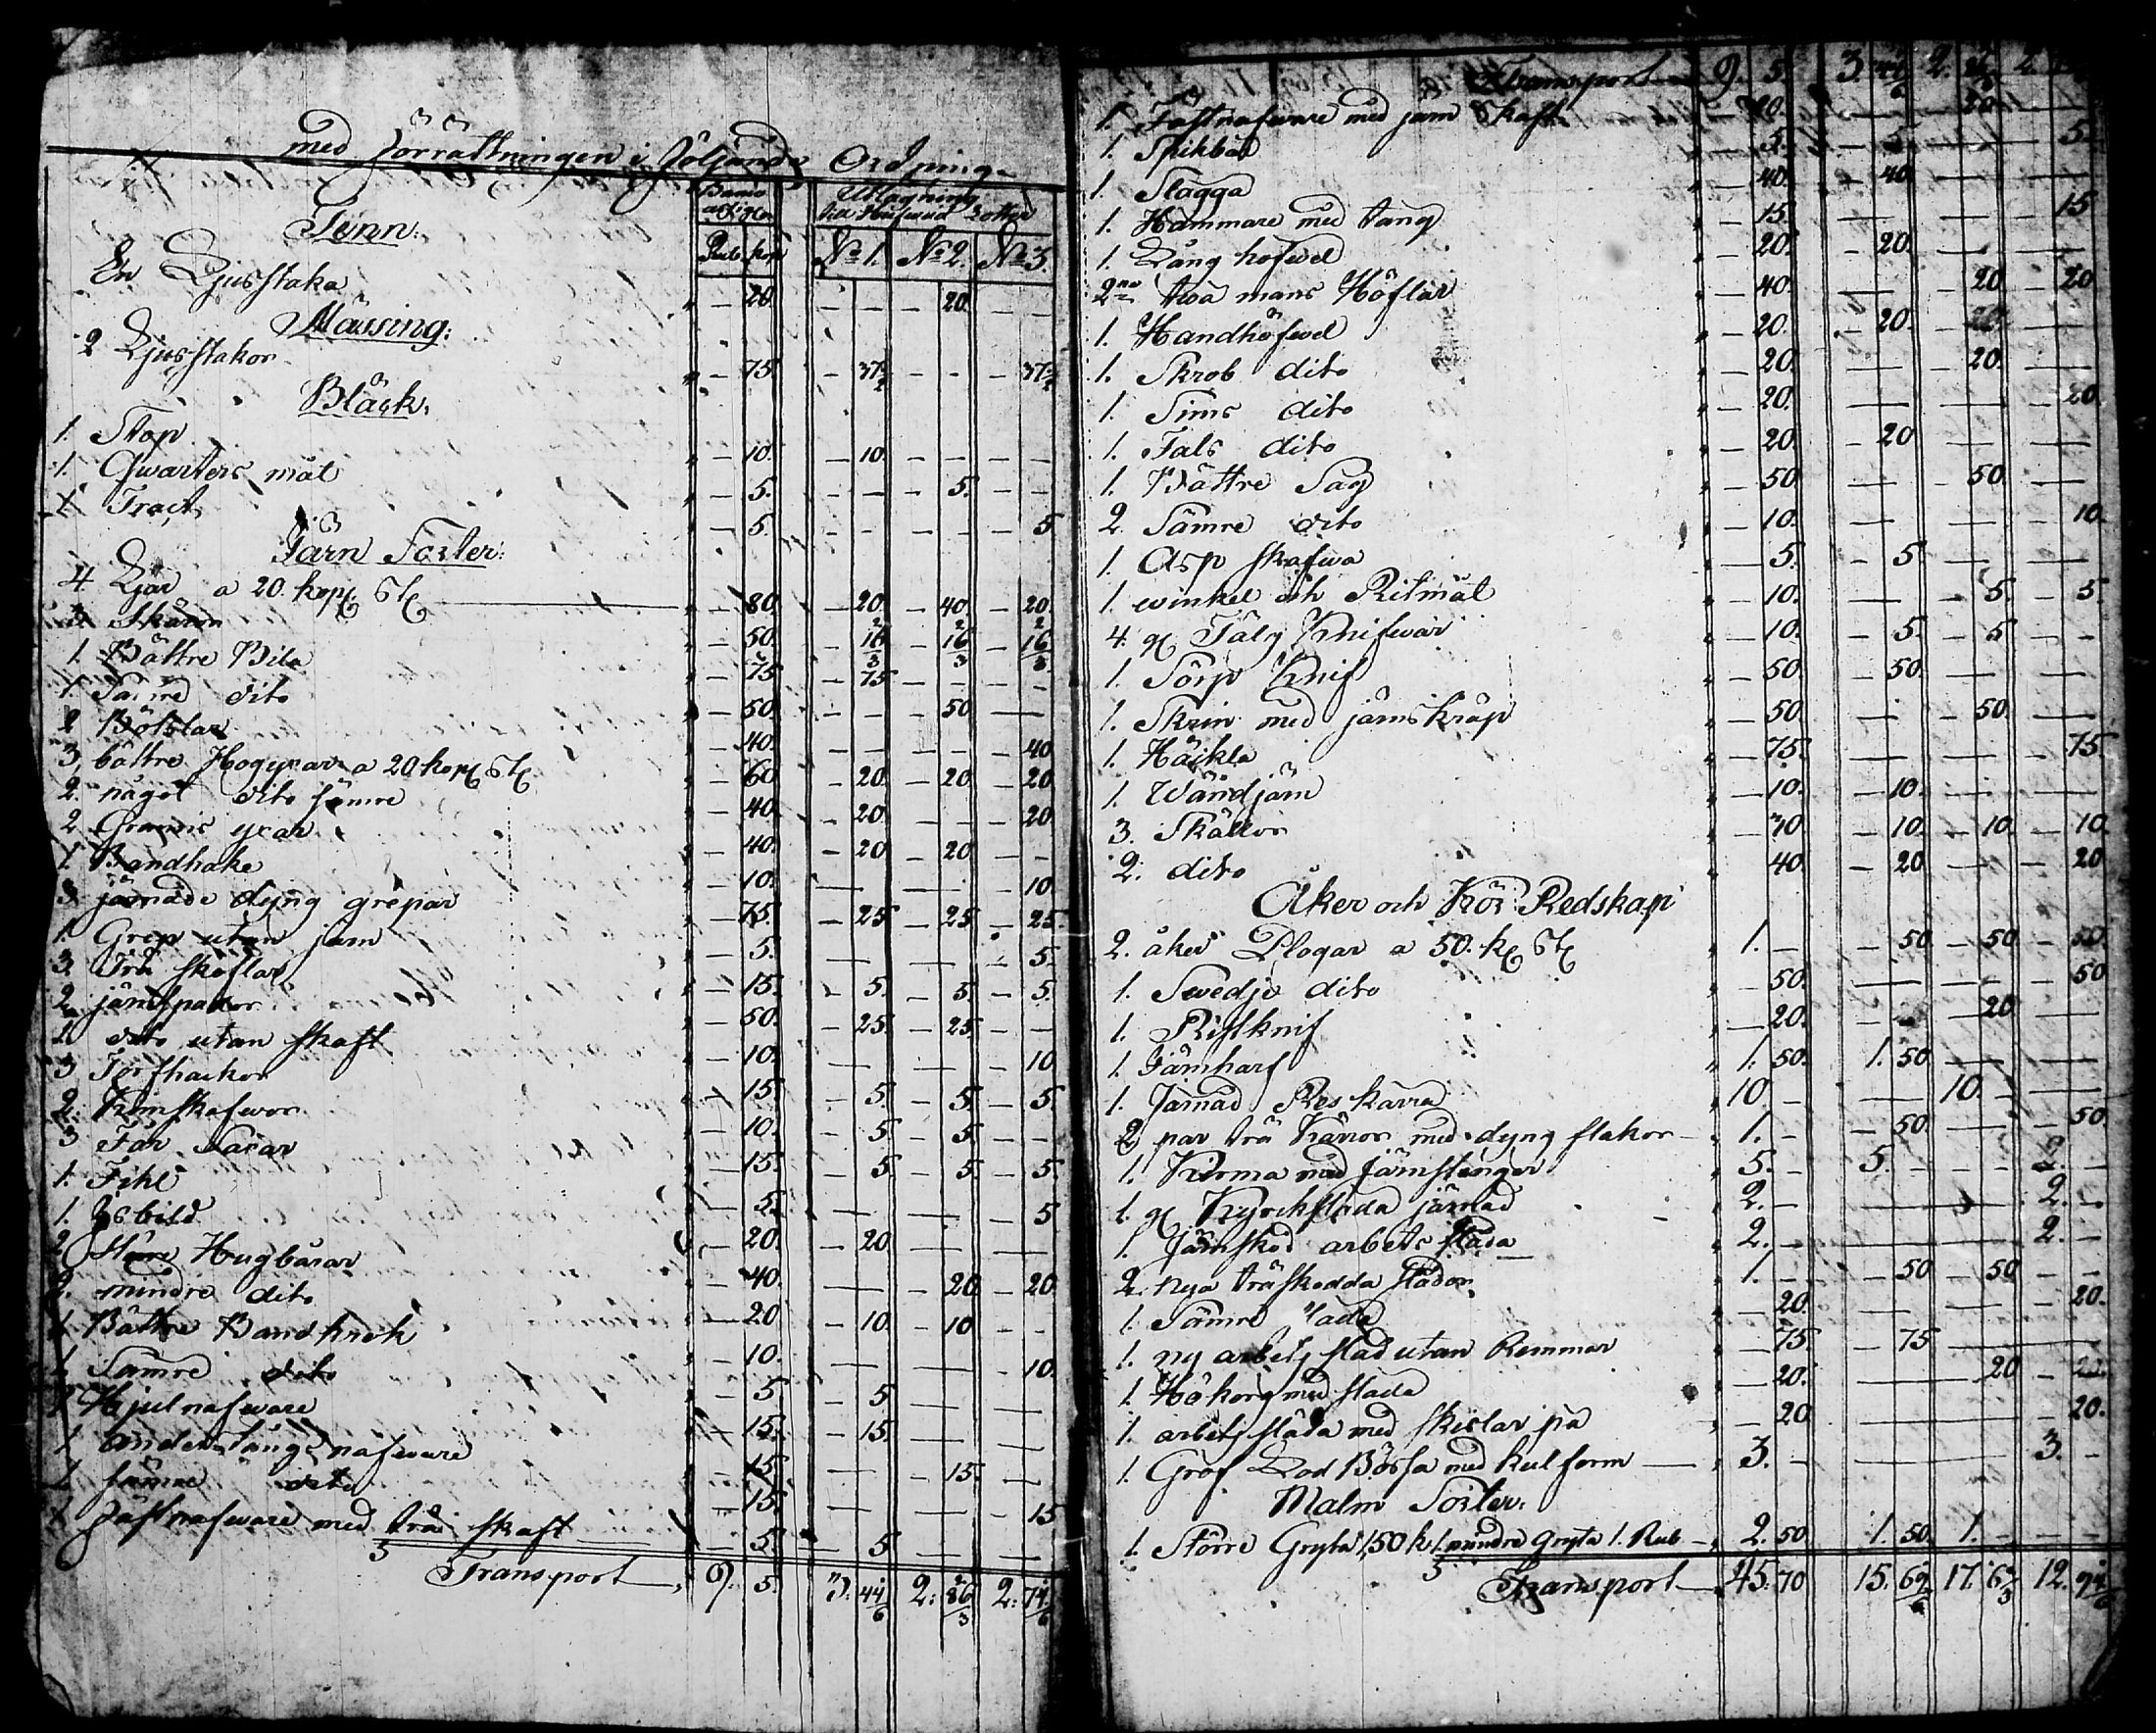 med förrättningen i följande Ordning.
Banco
Utlagning
till Hufwud Lotter
Rub. kop. No 1. No 2. No 3.
Tenn.
En Ljusstaka " — 20. — — — 20. — —
Mässing.
2 Ljusstakor " — 75. — 37 1/2 — — — 37 1/2
Bläck.
1. Stop " — 10. — 10. — — — —
1. Qwarters mät " — 5. — — — 5. — —
1. Tract " — 5. — — — — — 5
Järn Sorter.
4 Ljar a 20. kop. St. " — 80. — 20. — 40. — 20.
3 Skäror " — 50. — 16 2/3 — 16 2/3 — 16 2/3
1. Bättre Bila " — 75 — 75 — — — —
1 Sämre dito " — 50. — — — 50 —
2 Bötslar " — 40. — — — — — 40
3. bättre Hogyxar a 20 kop. St. " — 60 — 20. — 20 — 20
2. något dito sämre " — 40. — 20. — — — 20.
2 Granris yxar " — 40. — 20 — 20. — —
1. Bandhake " — 10. — — — 10
3 järnade dyng grepar " — 75. — 25 — 25 — 25.
1. Grep utan järn " — 5. — — — 5.
3. Trä skoflar " — 15. — 5. — 5. — 5.
2 järnspador " — 50. — 25. — 25. — —
2 dito utan skaft " — 10. — — — 10
3 Torfhackor " — 15. — 5. — 5. — 5.
2. Krimskafwor " — 10. — 5 — 5 — —
3 Får Saxar " — 15. — 5 — 5. — 5.
1. Fihl " — 5. — — — 5
1. Isbild " — 20. — 20 — —
2 större Hugbärar " — 40. — — 20 — 20
2. mindre dito " — 20 — 10. — 10 — —
1. Bättre Bandkrok " — 10. — — — 10.
1. Sämre dito " — 5 — 5 — —
1 Hjulnafware " — 15. — 15. — —
1 ander långnafware " — 15. — — 15. —
1 sämre dito " — 15. — — — 15
1 Fästnafware med trä skaft " — 5. — 5 — —
Transport " 9. 5. 3. 44 1/6 2: 86 2/3 2: 74 1/6
Transport 9. 5. 3. 44 1/6 2. 86 2/3 2.
1. Fästnafware med järn Skaft — 20. — — 20 —
1. Spikbår — 5. — 5 — — 5.
1. Slägga " — 40. — 40 — —
1. Hammare med tång " — 15. — — — 15
1. Lång hofwel " — 20. — 20. — —
2ne twa mans Höflar " — 40. — — 20 — 20
1. Handhöfwel " — 20. — 20. — —
1. Skrob dito " — 20. — — 20. —
1. Sims dito " — 20. — — 20.
1. Fals dito " — 20. — 20 — —
1. Bättre Såg " — 50 — — 50 —
2. Sämre dito " — 10. — — — 10.
1. Asp skafwa " — 5. — 5 — —
1. winkel och Ritmät " — 10. — — 5. — 5.
4. gl. Tälg Knifwar " — 10. — 5. — 5 — —
1. Sörp Knif " — 50 — 50. — —
1. Skrin med järnskräp " — 50 — — 50. —
1. Häckla " — 75. — — — 75
1. Wändjärn " — 10. — 10. — —
3. Skällor " — 30 — 10. — 10 — 10.
2. dito " 40 — 20 — — 20
Åker och Kör Redskap
2. åker Plogar a 50. k. St. " 1. — — 50 — 50 —
1. Swedje dito " — 50. — — — 50
1. Ristknif " — 20. — — 20 —
1. Järnharf " 1. 50. 1. 50 — —
1. Järnad Res kärra " 10. — — 10. — —
2 par trä Kärror med dyng flakor " 1. — — 50 — — 50.
1. Kärma med Järnstänger " 5. — 5. — — —
1. gl. Kyrckslada järnad " 2. — — — 2. —
1. Järnskod arbets släda " 2. — — — 2. —
2. nya träskodda slädor " 1. — — 50 — 50 — —
1. Sämre släda " — 20. — — — 20.
1. ny arbets släd utan Remmar " — 75. — 75 — —
1. Hökorg med släde " — 20. — — 20 —
1. arbets släda med skislar på " — 20 — — — 20.
1. Grof Lod Bössa med kulform — " 3. — — — 3. —
Malm Sorter.
1. Större Gryta 1,50 k 1 mindre Gryta 1. Rub — " 2. 50 1. 50 1. — —
Transport — 45. 70 15. 69 1/6 17. 6 2/3 12. 94